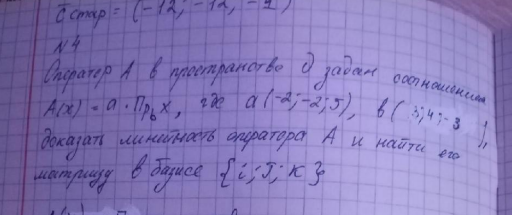 c стар = (-12; -12; -9)
N 4
Оператор A в пространстве задан соотношением
A(x) = a · Прb x, где a(-2; -2; 5), b( 3; 4; -3 ),
доказать линейность оператора A и найти его
матрицу в базисе {i; j; k}